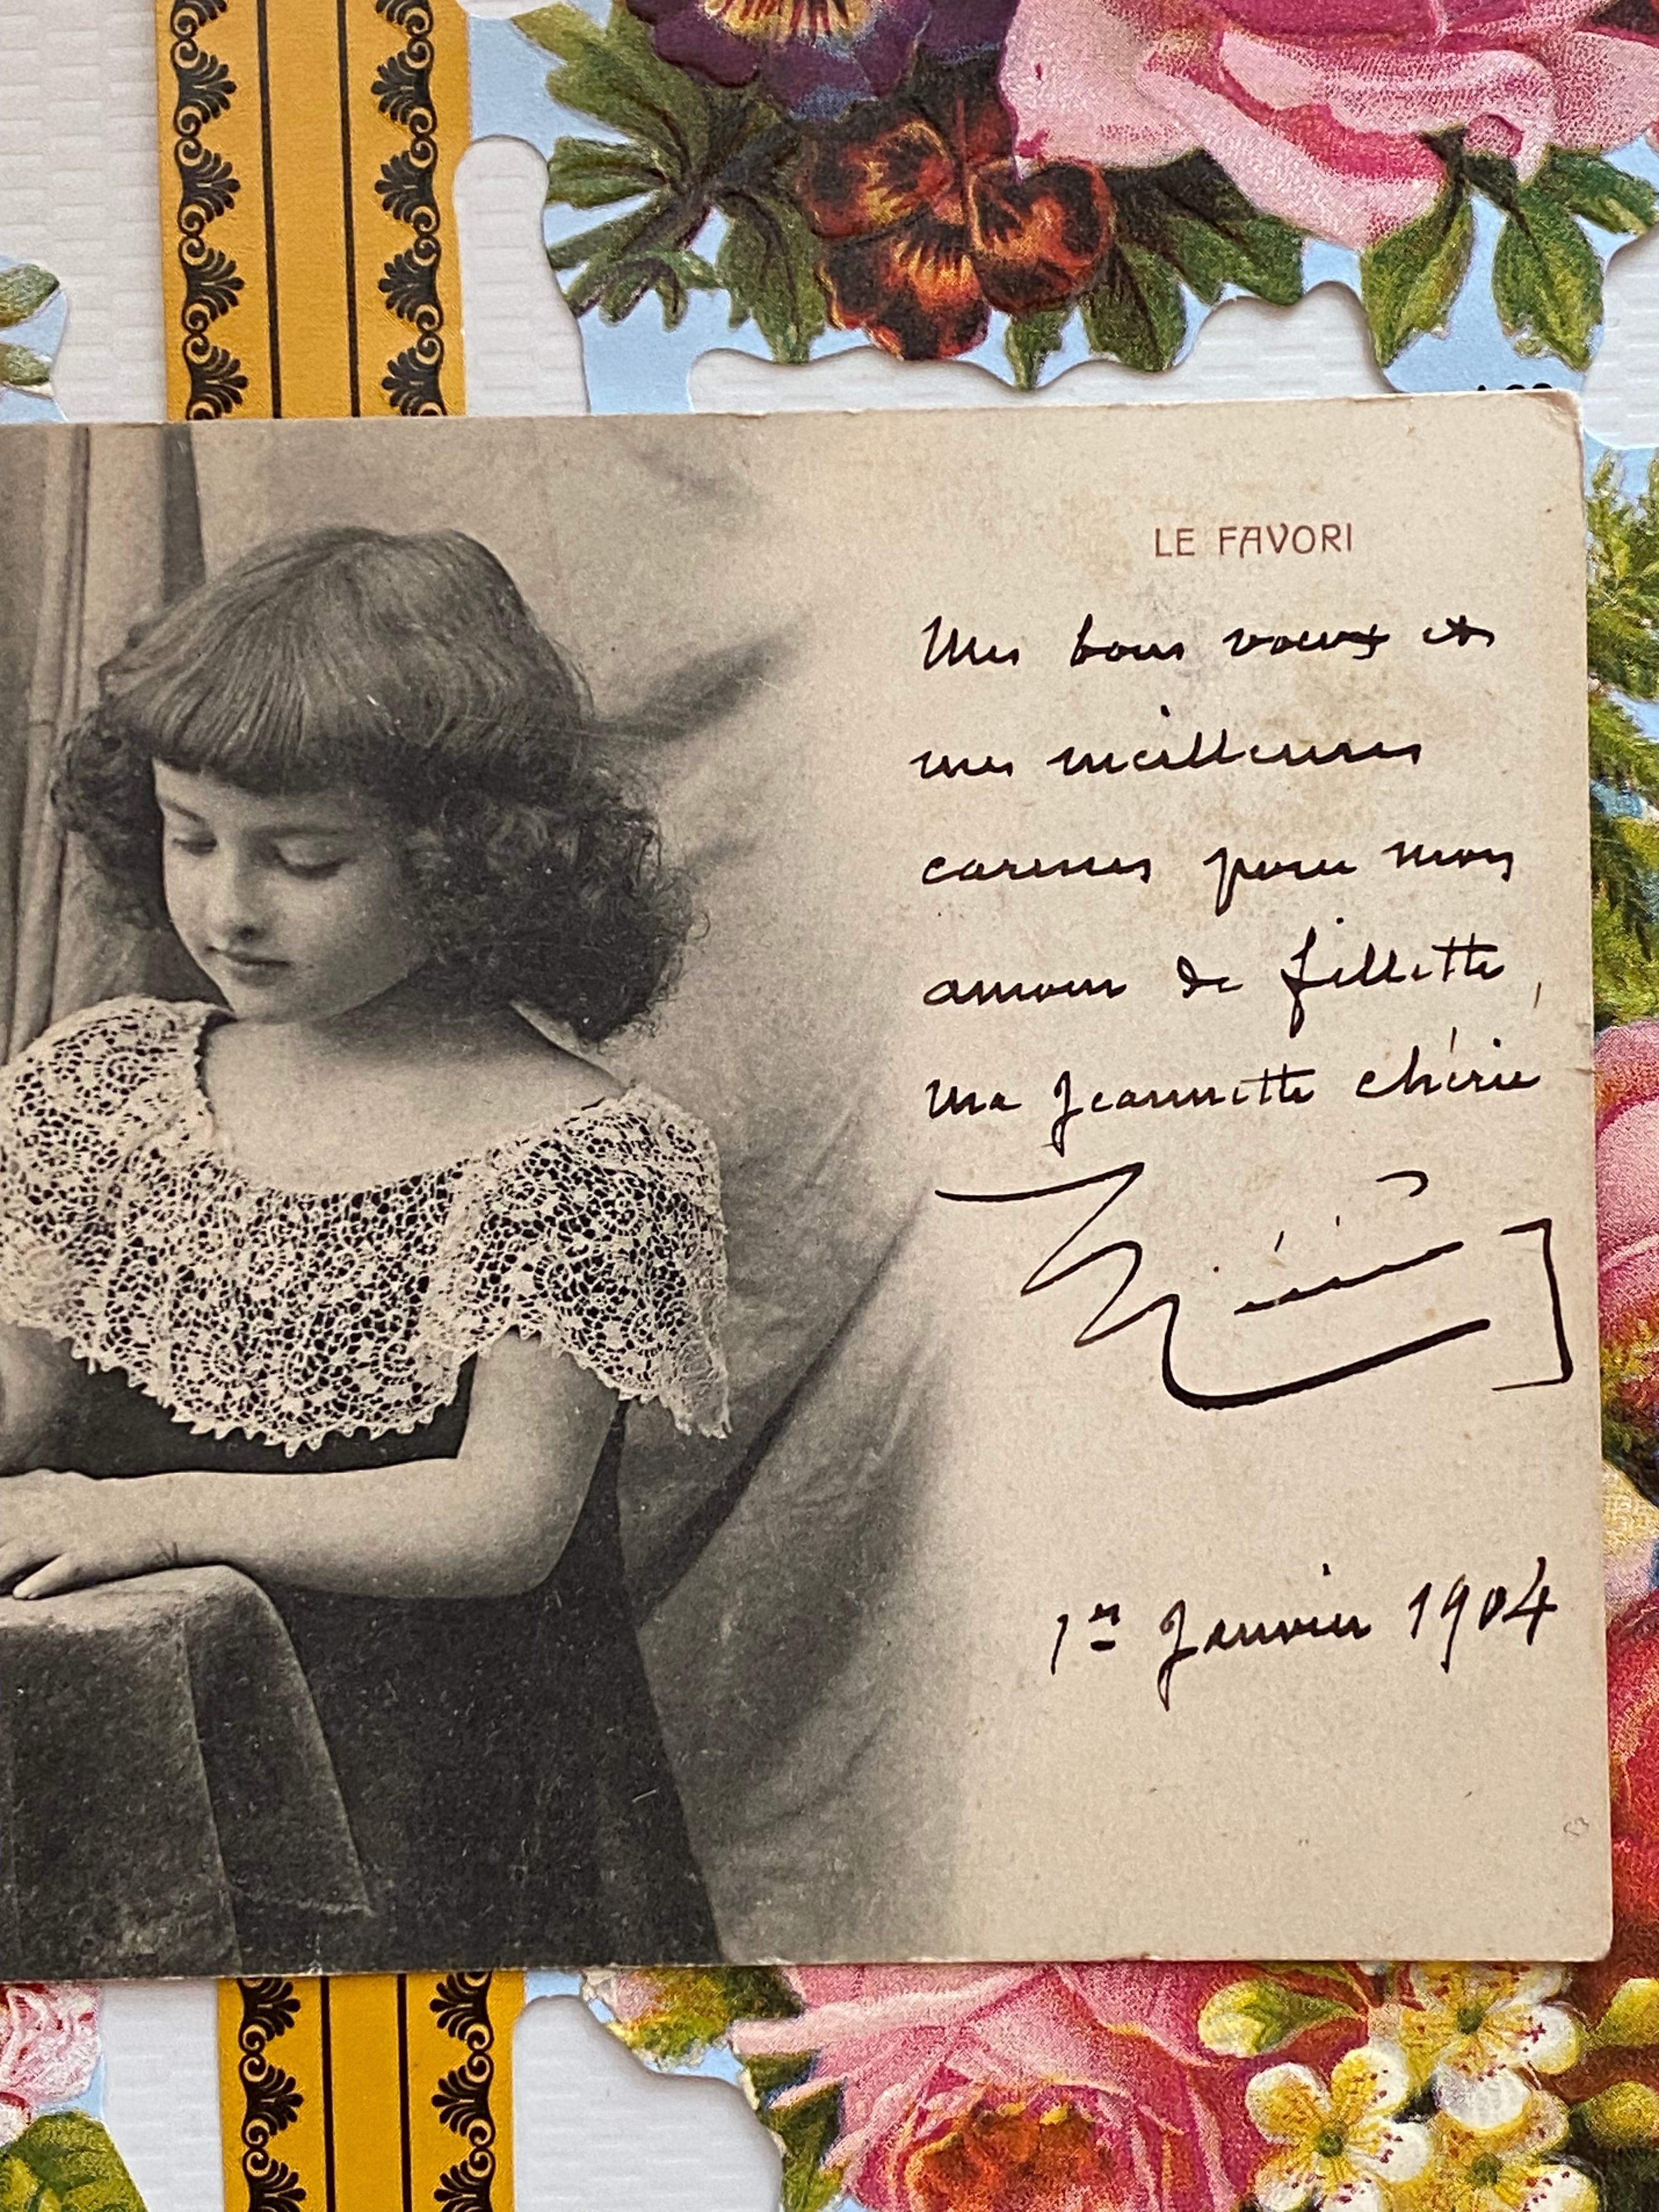 LE FAVORI
Mes bons voeux et
mes meilleures
caresses pour mon
amour de fillette,
ma Jeannette chérie
1er Janvier 1904